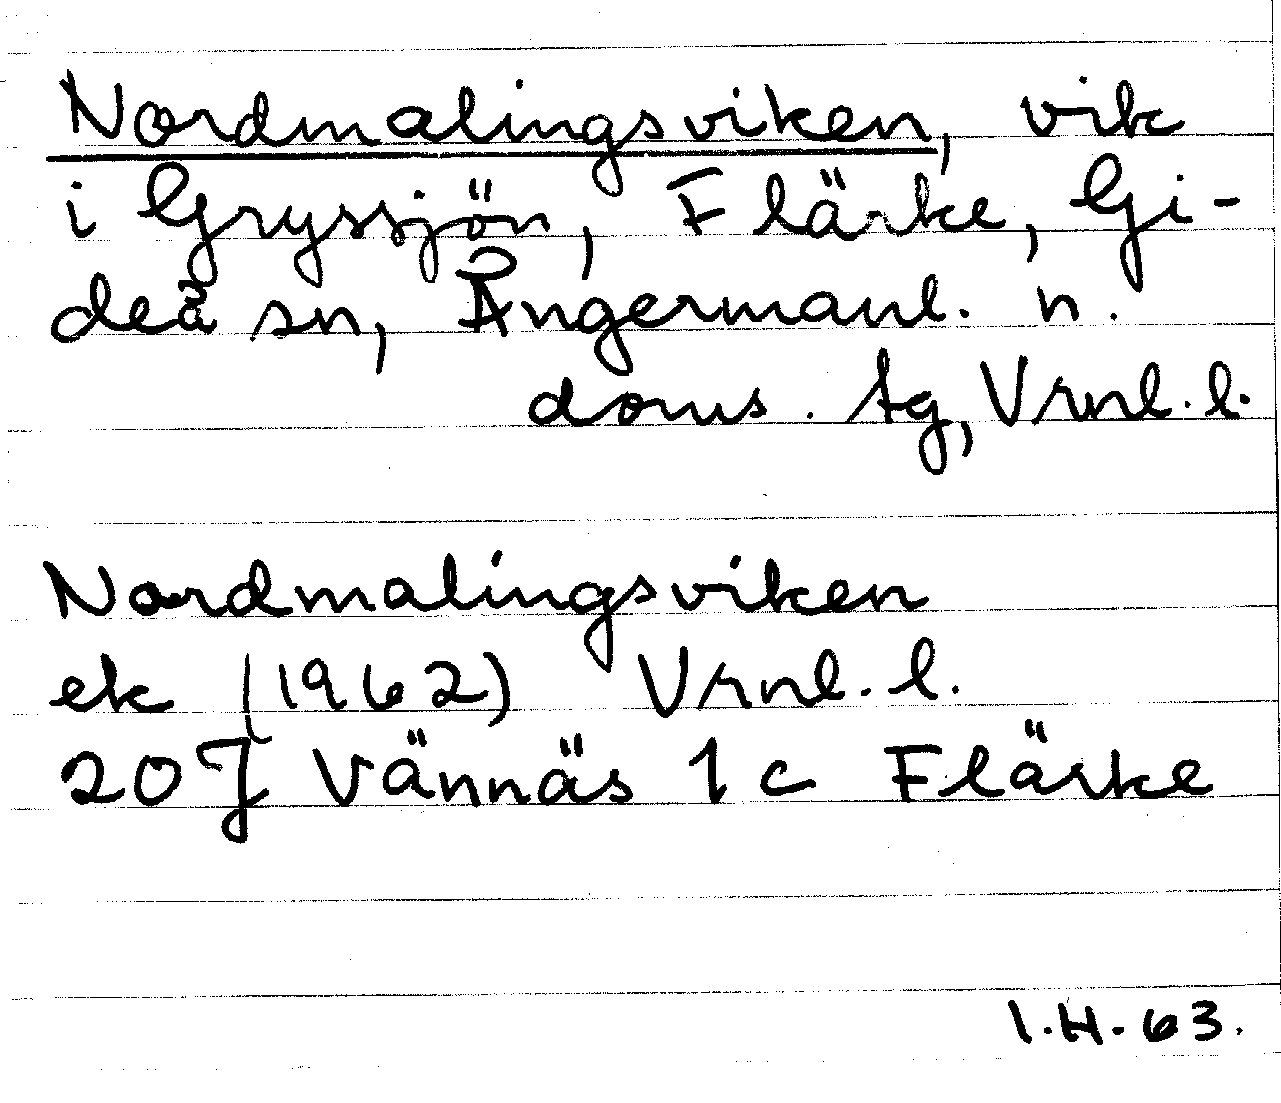 Nordmalingsviken, vik
i Gryssjön, Flärke, Gi-
deå sn, Ångermanl. n.
doms. tg, Vrnl. l.
Nordmalingsviken
ek (1962) Vrnl. l.
20 J Vännäs 1 c Flärke
I.H. 63.